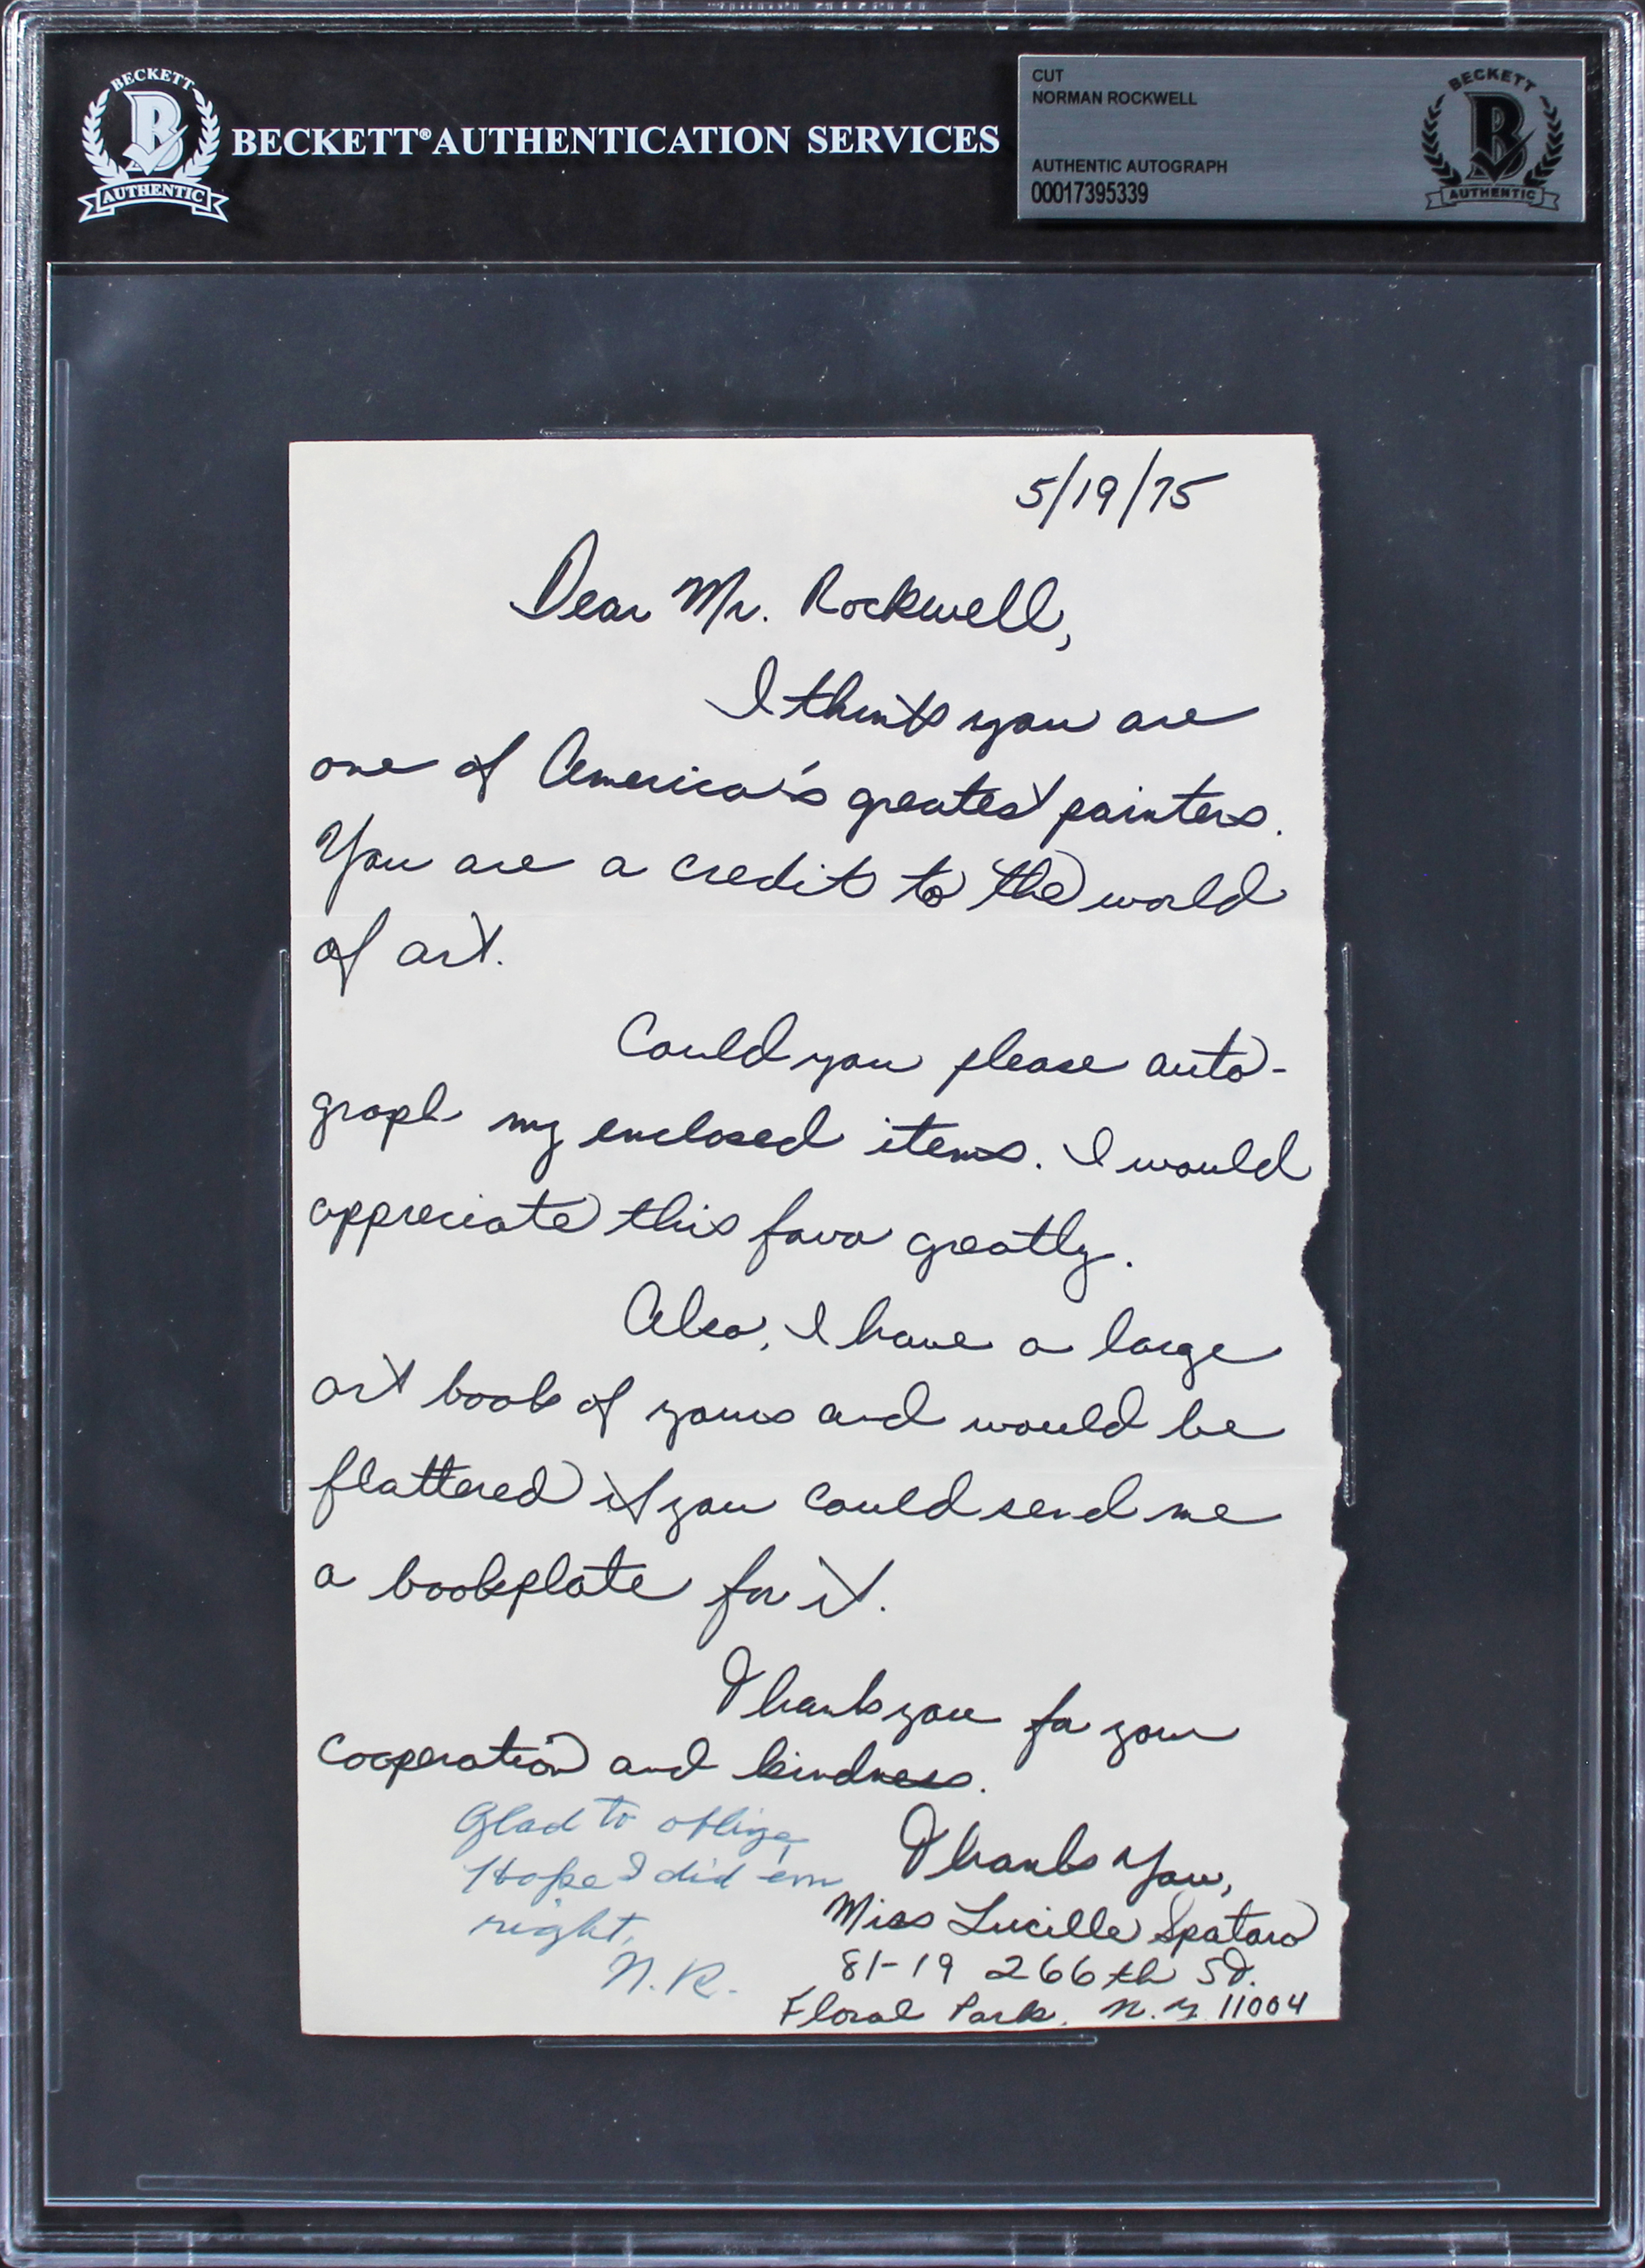 BECKETT
B
AUTHENTIC
BECKETT® AUTHENTICATION SERVICES
CUT
NORMAN ROCKWELL
AUTHENTIC AUTOGRAPH
00017395339
BECKETT
B
AUTHENTIC
5/19/75
Dear Mr. Rockwell,
I think you are
one of America's greatest painters.
You are a credit to the world
of art.
Could you please auto-
graph my enclosed items. I would
appreciate this favor greatly.
Also, I have a large
art book of yours and would be
flattered if you could send me
a bookplate for it.
Thank you for your
cooperation and kindness.
Glad to oblige,
Hope I did em
right,
N.R.
Thank You,
Miss Lucille Spataro
81-19 266th St.
Floral Park, N.Y. 11004